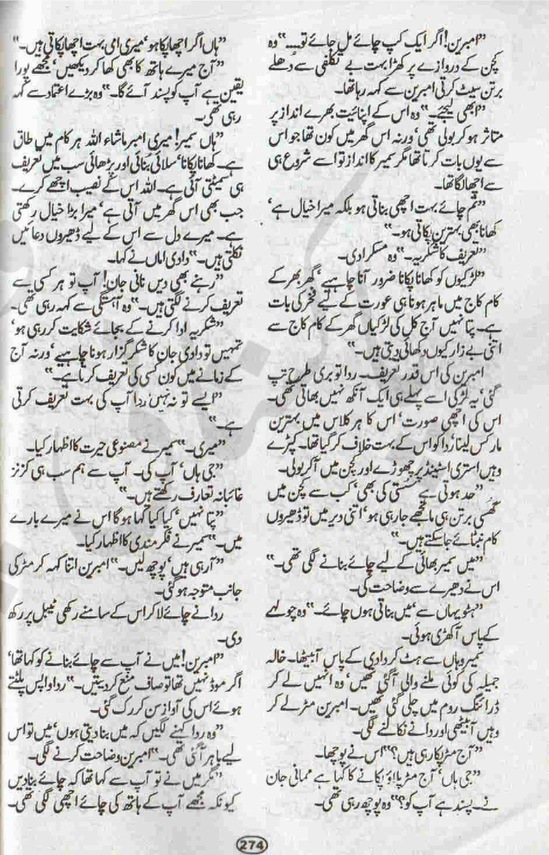 ”امبرین! اگر ایک کپ چائے مل جائے تو......“ وہ
کچن کے دروازے پر کھڑا بہت بے تکلفی سے دھلے
برتن سیٹ کرتی امبرین سے کہہ رہا تھا۔
”ابھی لیجئے۔“ وہ اس کے اپنائیت بھرے انداز پر
متاثر ہو کر بولی تھی‘ ورنہ اس گھر میں کون تھا جو اس
سے یوں بات کرتا تھا مگر سمیر کا انداز تو اسے شروع ہی
سے اچھا لگا تھا۔
”تم چائے بہت اچھی بناتی ہو بلکہ میرا خیال ہے‘
کھانا بھی بہترین پکاتی ہو۔“
”تعریف کا شکریہ۔“ وہ مسکرا دی۔
”لڑکیوں کو کھانا پکانا ضرور آنا چاہیے‘ گھر بھر کے
کام کاج میں ماہر ہونا ہی عورت کے لیے فخر کی بات
ہے۔ پتا نہیں آج کل کی لڑکیاں گھر کے کام کاج سے
اتنی بے زار کیوں دکھائی دیتی ہیں۔“
امبرین کی اس قدر تعریف۔ ردا تو بری طرح تپ
گئی‘ یہ لڑکی اسے پہلے ہی ایک آنکھ نہیں بھاتی تھی۔
اس کی اچھی صورت‘ اس کا ہر کلاس میں بہترین
مارکس لینا ردا کو اس کے بہت خلاف کر گیا تھا۔ کپڑے
وہیں استری اسٹینڈ پر چھوڑے اور کچن میں آ کر بولی۔
”حد ہوتی ہے سستی کی بھی‘ کب سے کچن میں
گھسی برتن ہی مانجھے جا رہی ہو‘ اتنی دیر میں تو ڈھیروں
کام نبٹائے جا سکتے ہیں۔“
”میں سمیر بھائی کے لیے چائے بنانے لگی تھی۔“
اس نے دھیرے سے وضاحت کی۔
”ہٹو یہاں سے‘ میں بناتی ہوں چائے۔“ وہ چولہے
کے پاس آ کھڑی ہوئی۔
سمیر وہاں سے ہٹ کر دادی کے پاس آ بیٹھا۔ خالہ
جمیلہ کی کوئی ملنے والی آ گئی تھیں‘ وہ انہیں لے کر
ڈرائنگ روم میں چلی گئی تھیں۔ امبرین مٹر لے کر
وہیں آ بیٹھی اور دانے نکالنے لگی۔
”آج مٹر پکا رہی ہیں؟“ اس نے پوچھا۔
”جی ہاں‘ آج مٹر پلاؤ پکانے کا کہا ہے ممانی جان
نے۔ پسند ہے آپ کو؟“ وہ پوچھ رہی تھی۔
”ہاں اگر اچھا پکا ہو‘ میری امی بہت اچھا پکاتی ہیں۔“
”آج میرے ہاتھ کا بھی کھا کر دیکھیں‘ مجھے پورا
یقین ہے آپ کو پسند آئے گا۔“ وہ بڑے اعتماد سے کہہ
رہی تھی۔
”ہاں سمیر! میری امبر ماشاء اللہ ہر کام میں طاق
ہے۔ کھانا پکانا‘ سلائی بنائی اور پڑھائی سب میں تعریف
ہی سمیٹتی آئی ہے۔ اللہ اس کے نصیب اچھے کرے۔
جب بھی اس گھر میں آتی ہے‘ میرا بڑا خیال رکھتی
ہے۔ میرے دل سے اس کے لیے ڈھیروں دعائیں
نکلتی ہیں۔“ دادی اماں نے کہا۔
”رہنے بھی دیں نانی جان! آپ تو ہر کسی سے
تعریف کرنے لگتی ہیں۔“ وہ آہستگی سے کہہ رہی تھی۔
”شکریہ ادا کرنے کے بجائے شکایت کر رہی ہو‘
تمہیں تو دادی جان کا شکر گزار ہونا چاہیے‘ ورنہ آج
کے زمانے میں کون کسی کی تعریف کرتا ہے۔“
”ایسے تو نہ کہیں‘ ردا آپ کی بہت تعریف کرتی
ہے۔“
”میری۔“ سمیر نے مصنوعی حیرت کا اظہار کیا۔
”جی ہاں‘ آپ کی۔ آپ سے ہم سب ہی کزنز
غائبانہ تعارف رکھتے ہیں۔“
”پتا نہیں‘ کیا کیا کہا ہو گا اس نے میرے بارے
میں۔“ سمیر نے فکر مندی کا اظہار کیا۔
”آ رہی ہیں‘ پوچھ لیں۔“ امبرین اتنا کہہ کر مٹر کی
جانب متوجہ ہو گئی۔
ردا نے چائے لا کر اس کے سامنے رکھی ٹیبل پر رکھ
دی۔
”امبرین! میں نے آپ سے چائے بنانے کو کہا تھا‘
اگر موڈ نہیں تھا تو صاف منع کر دیتیں۔“ ردا واپس پلٹتے
ہوئے اس کی آواز سن کر رک گئی۔
”وہ ردا کہنے لگیں کہ میں بنا دیتی ہوں‘ میں تو اس
لیے باہر آ گئی تھی۔“ امبرین وضاحت کرنے لگی۔
”مگر میں نے تو آپ سے کہا تھا کہ چائے بنا دیں
کیونکہ مجھے آپ کے ہاتھ کی چائے اچھی لگی تھی۔
274